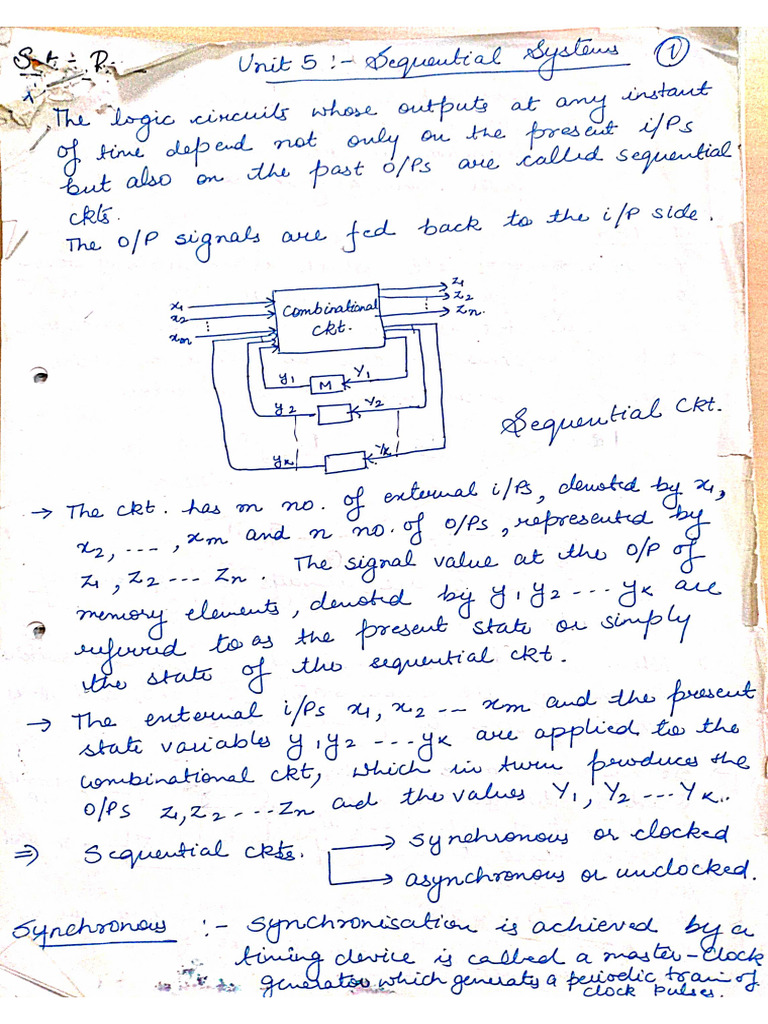 Unit 5 :- Sequential Systems ①
The logic circuits whose outputs at any instant
of time depend not only on the present i/Ps
but also on the past O/Ps are called sequential
ckts.
The O/P signals are fed back to the i/P side.
x1
x2
xm
Combinational
ckt.
z1
z2
Zn.
y1 M Y1
y2 Y2
yk Yk
Sequential Ckt.
→ The ckt. has m no. of external i/Ps, denoted by x1,
x2, ---, xm and n no. of O/Ps, represented by
z1, z2 --- Zn. The signal value at the O/P of
memory elements, denoted by y1y2 --- yk are
referred to as the present state or simply
the state of the sequential ckt.
→ The external i/Ps x1, x2 -- xm and the present
state variables y1y2 ---yk are applied to the
combinational ckt, which in turn produces the
O/Ps z1, z2 ---Zn and the values Y1, Y2 ---Yk.
⇒ Sequential ckts. → synchronous or clocked
→ asynchronous or unclocked.
Synchronous :- Synchronisation is achieved by a
timing device is called a master-clock
generator which generates a periodic train of
clock pulses.